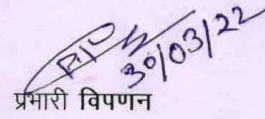 30/03/22
प्रभारी विपणन